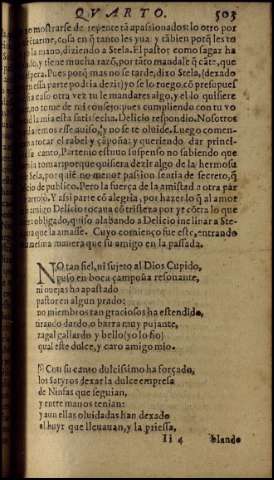 QVARTO. 503
mostrarse de repente tã apasionados: lo otro por
cosa en q̃ tanto les yua: y tãbien porq̃ les to
la mano, diziendo a Stela. El pastor como sagaz ha
y tiene mucha razõ, por tãto mandale q̃ cãte, que
pera. Pues porq̃ mas no se tarde, dixo Stela, (dexado
essa parte podria dezir) yo se lo ruego, cõ presupuesto
a caso otra vez tu le mandares algo, y el lo quisiere
no tome de mi consejo: pues cumpliendo con tu vo
la mia esta satisfecha. Delicio respondio. Nosotros
esse auiso, y no se te oluide. Luego comen
tocar el rabel y çãpoña: y queriendo dar princi
canto, Partenio estuuo suspenso no sabiendo que
tomar: porque quisiera dezir algo de la hermosa
Stela, por quiẽ no menor passion sentia de secreto, q̃
de publico. Pero la fuerça de la amistad a otra par
Y assi parte cõ alegria, por hazer lo q̃ al amor
amigo Delicio tocaua cõ tristeza por yr cõtra lo que
obligado, quiso alabando a Delicio inclinar a Ste
que la amasse. Cuyo comienço fue este, entrando
manera que su amigo en la passada.
NO tan fiel, ni sujeto al Dios Cupido,
puso en boca campoña resonante,
ni ouejas ho apastado
pastor en algun prado:
no miembros tan graciosos ha estendido,
tirando dardo, o barra muy pujante,
zagal gallardo y bello (yo lo fio)
qual este dulce, y caro amigo mio.
Con su canto dulcissimo ha forçado,
los Satyros dexar la dulce empresa
de Ninfas que seguian,
y entre manos tenian:
y aun ellas oluidadas han dexado
al huyr que lleuauan, y la priessa,
Ii 4 blando